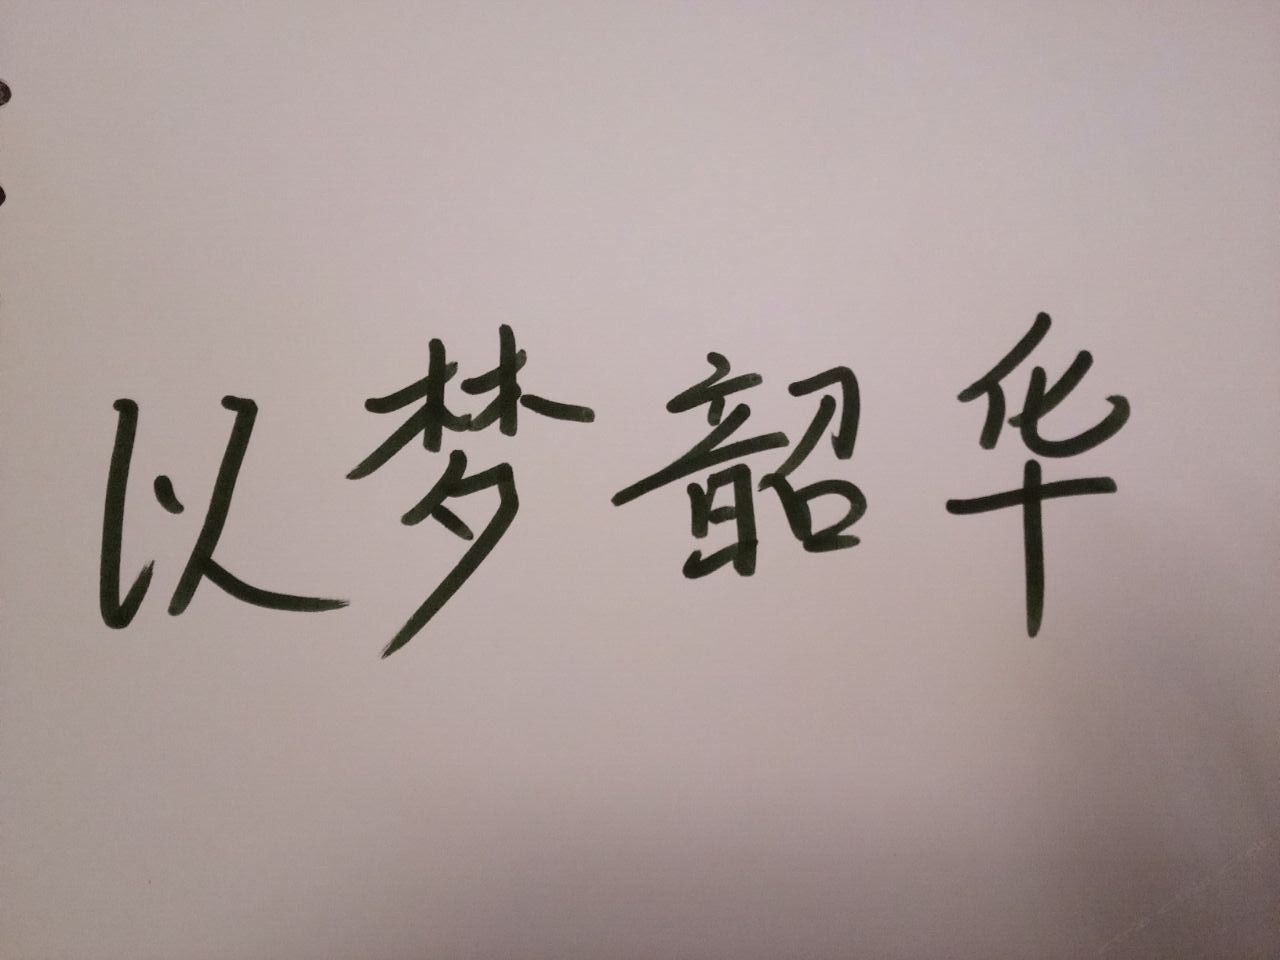 以梦韶华